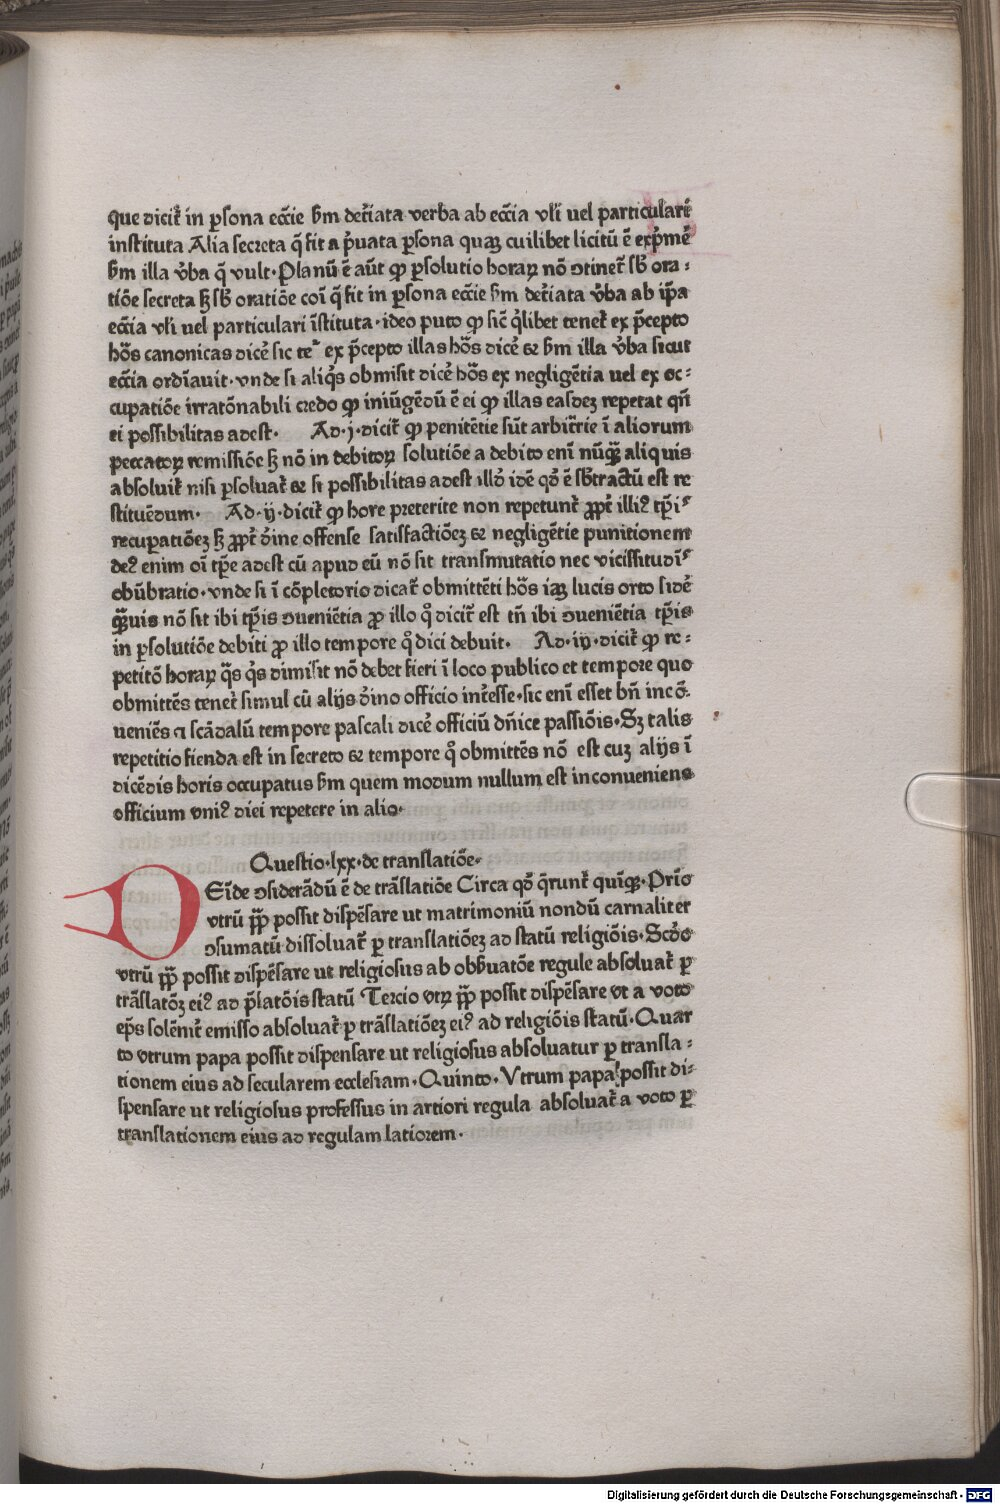 que dicit̃ in ꝑsona ecc̄ie ẜm det̃iata verba ab ecc̄ia vl̃i uel particulari
instituta Alia secreta q̄ fit a p̃uata ꝑsona quaꝫ cuilibet licitū ē exp̃mẽ
ẜm illa v̾ba q̄ vult·Planū ē aūt ꝙ ꝑsolutio horaꝝ nō ↄtinet̃ sb̃ ora⸗
tiōe secreta sꝫ sb̃ oratiōe coī q̄ fit in ꝑsona ecc̄ie ẜm det̃iata v̾ba ab ip̄a
ecc̄ia vl̃i uel particulari ĩstituta·ideo puto ꝙ sic̃ q̃libet tenet̃ ex p̄cepto
hōs canonicas dicẽ sic te͛ ex p̄cepto illas hōs dicẽ ⁊ ẜm illa v̾ba sicut
ecc̄ia ordīauit·vnde si aliq̃s obmisit dicẽ hōs ex negligētia uel ex oc⸗
cupatiōe irratōnabili credo ꝙ iniūgēdū ē ei ꝙ illas easdeꝫ repetat qñ
ei possibilitas adest· Ad·j·dicit̃ ꝙ penitētie sūt arbit̃rie ī aliorum
peccatoꝝ remissiōe sꝫ nō in debitoꝝ solutiōe a debito enī nūꝗ̃ aliquis
absoluit̃ nisi ꝑsoluat̃ ⁊ si possibilitas adest illd̾ idē qd̾ ē sb̾tractū est re
stituēdum· Ad·ij·dicit̃ ꝙ hore preterite non repetunt̃ ꝓpt̃ illiꝰ tp̄is
recuperatiōeꝫ sꝫ ꝓpt̃ d̾ine offense satisfactiōeꝫ ⁊ negligētie punitionem
deꝰ enim oī tp̄e adest cū apud eū nō sit transmutatio nec vicissitudīs
obūbratio·vnde si ī cōpletorio dicat̃ obmittēti hōs iaꝫ lucis orto sidẽ
ꝗ̃uis nō sit ibi tp̄is ↄueniētia ꝓ illo q̊ dicit̃ est tñ ibi ↄueniētia tp̄is
in ꝑsolutiōe debiti ꝓ illo tempore q̊ dici debuit· Ad·iij·dicit̃ ꝙ re⸗
petitō horaꝝ q̃s q̃s dimisit nō debet fieri ī loco publico et tempore quo
obmittēs tenet̃ simul cū alijs d̾ino officio int̃esse·sic enī esset bñ incō⸗
ueniēs ⁊ scādalū tempore pascali dicẽ officiū dñice passiōis·Sꝫ talis
repetitio fienda est in secreto ⁊ tempore q̊ obmittēs nō est cuꝫ alijs ī
dicēdis horis occupatus ẜm quem modum nullum est inconueniens
officium vniꝰ diei repetere in alio·
Questio·lxx·de translatiōe·
DEīde ↄsiderādū ē de trāslatiōe Circa qd̾ q̄runt̃ quīqꝫ·Prīo
vtrū pp̄ possit dispēsare ut matrimoniū nondū carnaliter
ↄsumatū dissoluat̃ ꝑ translatiōeꝫ ad statū religiōis·Scd̾o
vtrū pp̄ possit dispēsare ut religiosus ab obẜuatōe regule absoluat̃ ꝑ
trāslatōꝫ eiꝰ ad p̄latōis statū Tercio vtꝝ pp̄ possit dispēsare vt a voto
ep̄s solēnit̃ emisso absoluat̃ ꝑ trāslatiōeꝫ eiꝰ ad religiōis statū·Quar
to vtrum papa possit dispensare ut religiosus absoluatur ꝑ transla⸗
tionem eius ad secularem ecclesiam·Quinto·Vtrum papa possit di⸗
spensare ut religiosus professus in artiori regula absoluat̃ a voto ꝑ
translationem eius ad regulam latiorem·
Digitalisierung gefördert durch die Deutsche Forschungsgemeinschaft - DFG